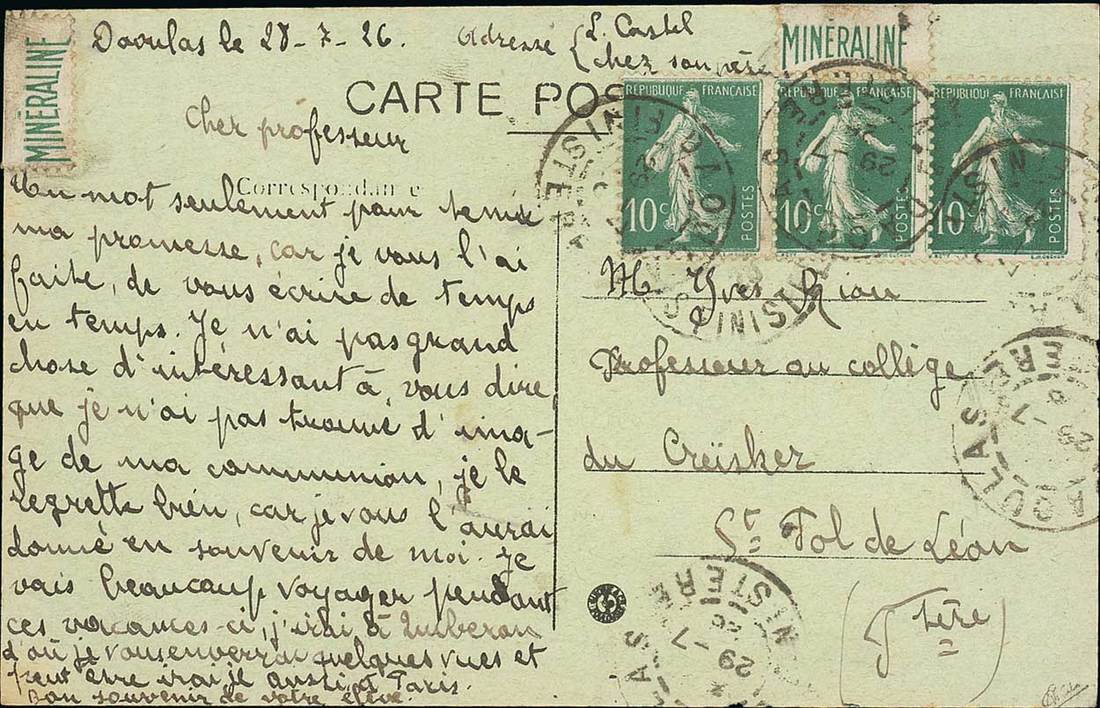 MINÉRALINE
Daoulas le 28-7-26. Adresse { L. Castel
chez son père
MINÉRALINE
CARTE POS
Cher professeur
Correspondance
Un mot seulement pour tenir
ma promesse, car je vous l'ai
faite, de vous écrire de temps
en temps. Je n'ai pas grand
chose d'intéressant à vous dire
que je n'ai pas trouvé d'ima-
ge de ma communion, je le
regrette bien, car je vous l'aurai
donné en souvenir de moi. Je
vais beaucoup voyager pendant
ces vacances-ci, j'irai à Quiberon
d'où je vous enverrai quelques vues et
peut être irai je aussi à Paris.
Bon souvenir de votre élève.
RÉPUBLIQUE FRANÇAISE
10c POSTES
RÉPUBLIQUE FRANÇAISE
10c POSTES
RÉPUBLIQUE FRANÇAISE
10c POSTES
M. Yves Rion
Professeur au collège
du Creïsker
St Pol de Léon
(Ftère)
DAOULAS
FINISTERE
29-7
26